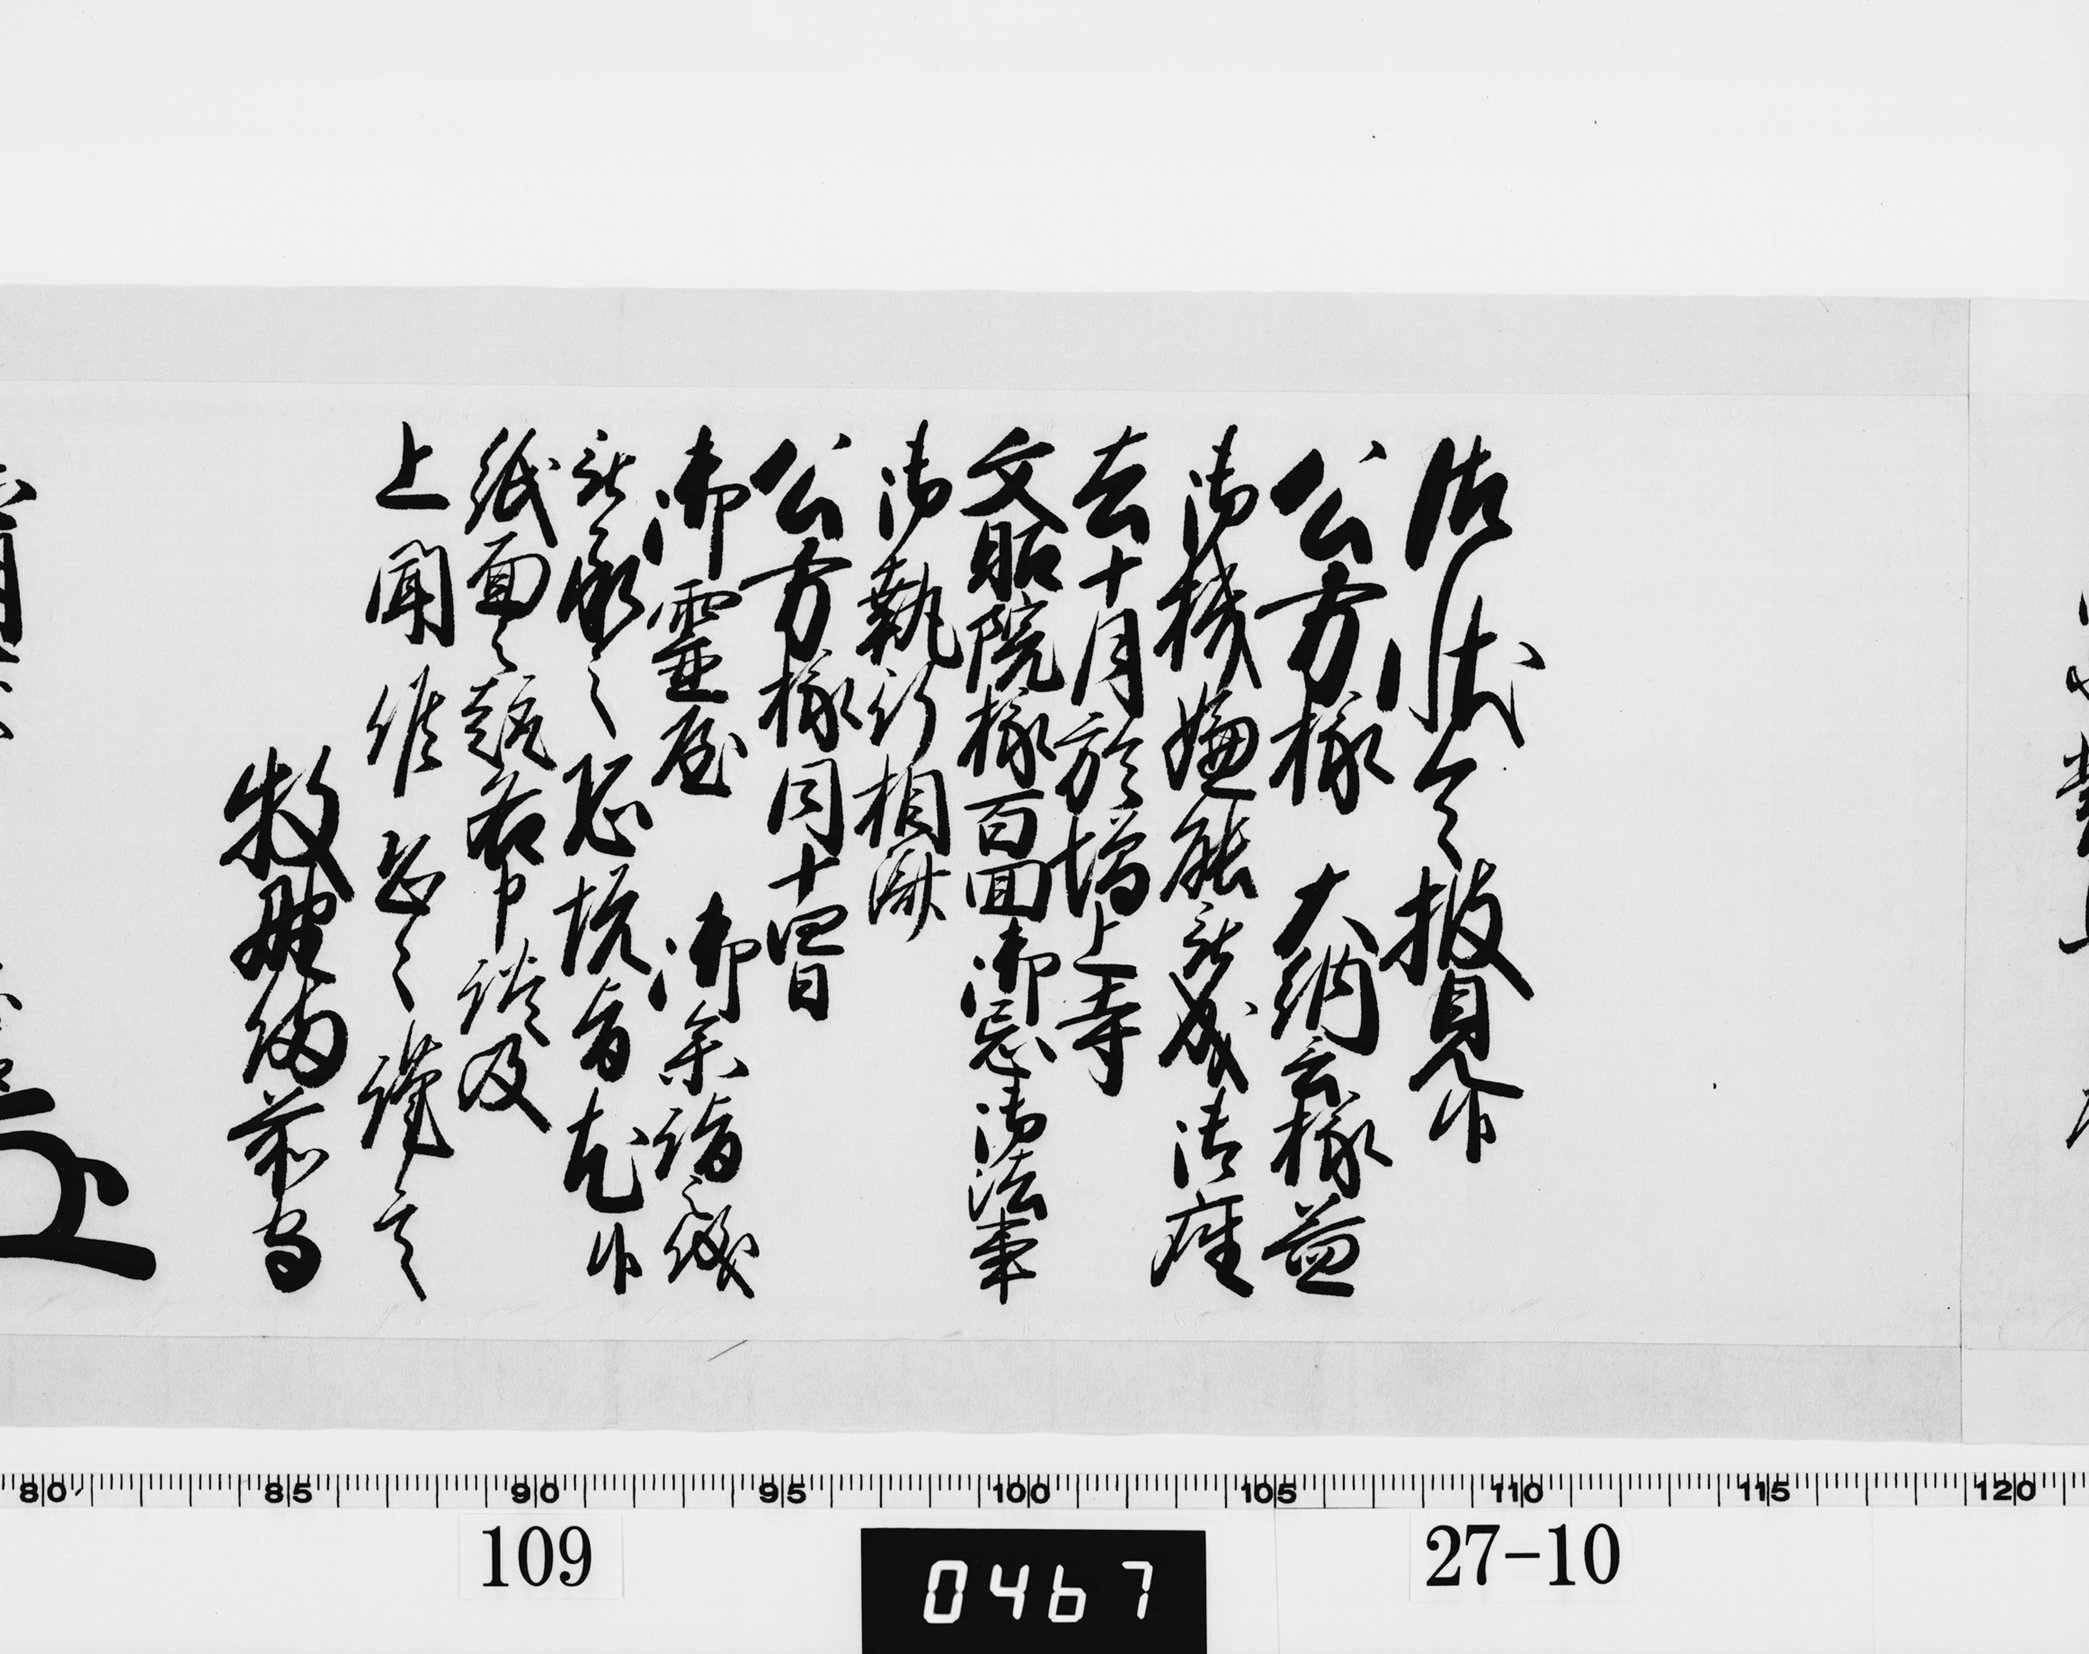 御状令披見候
公方様 大納言様益
御機嫌能被成御座
去十月於増上寺
文昭院様百回御忌御法事
御執行相済
公方様同十四日
御霊屋 御参詣之儀
被承之恐悦旨尤候
紙面之趣各申談及
上聞候恐々謹言
牧野備前守
80 85 90 95 100 105 110 115 120
109
0467
27-10